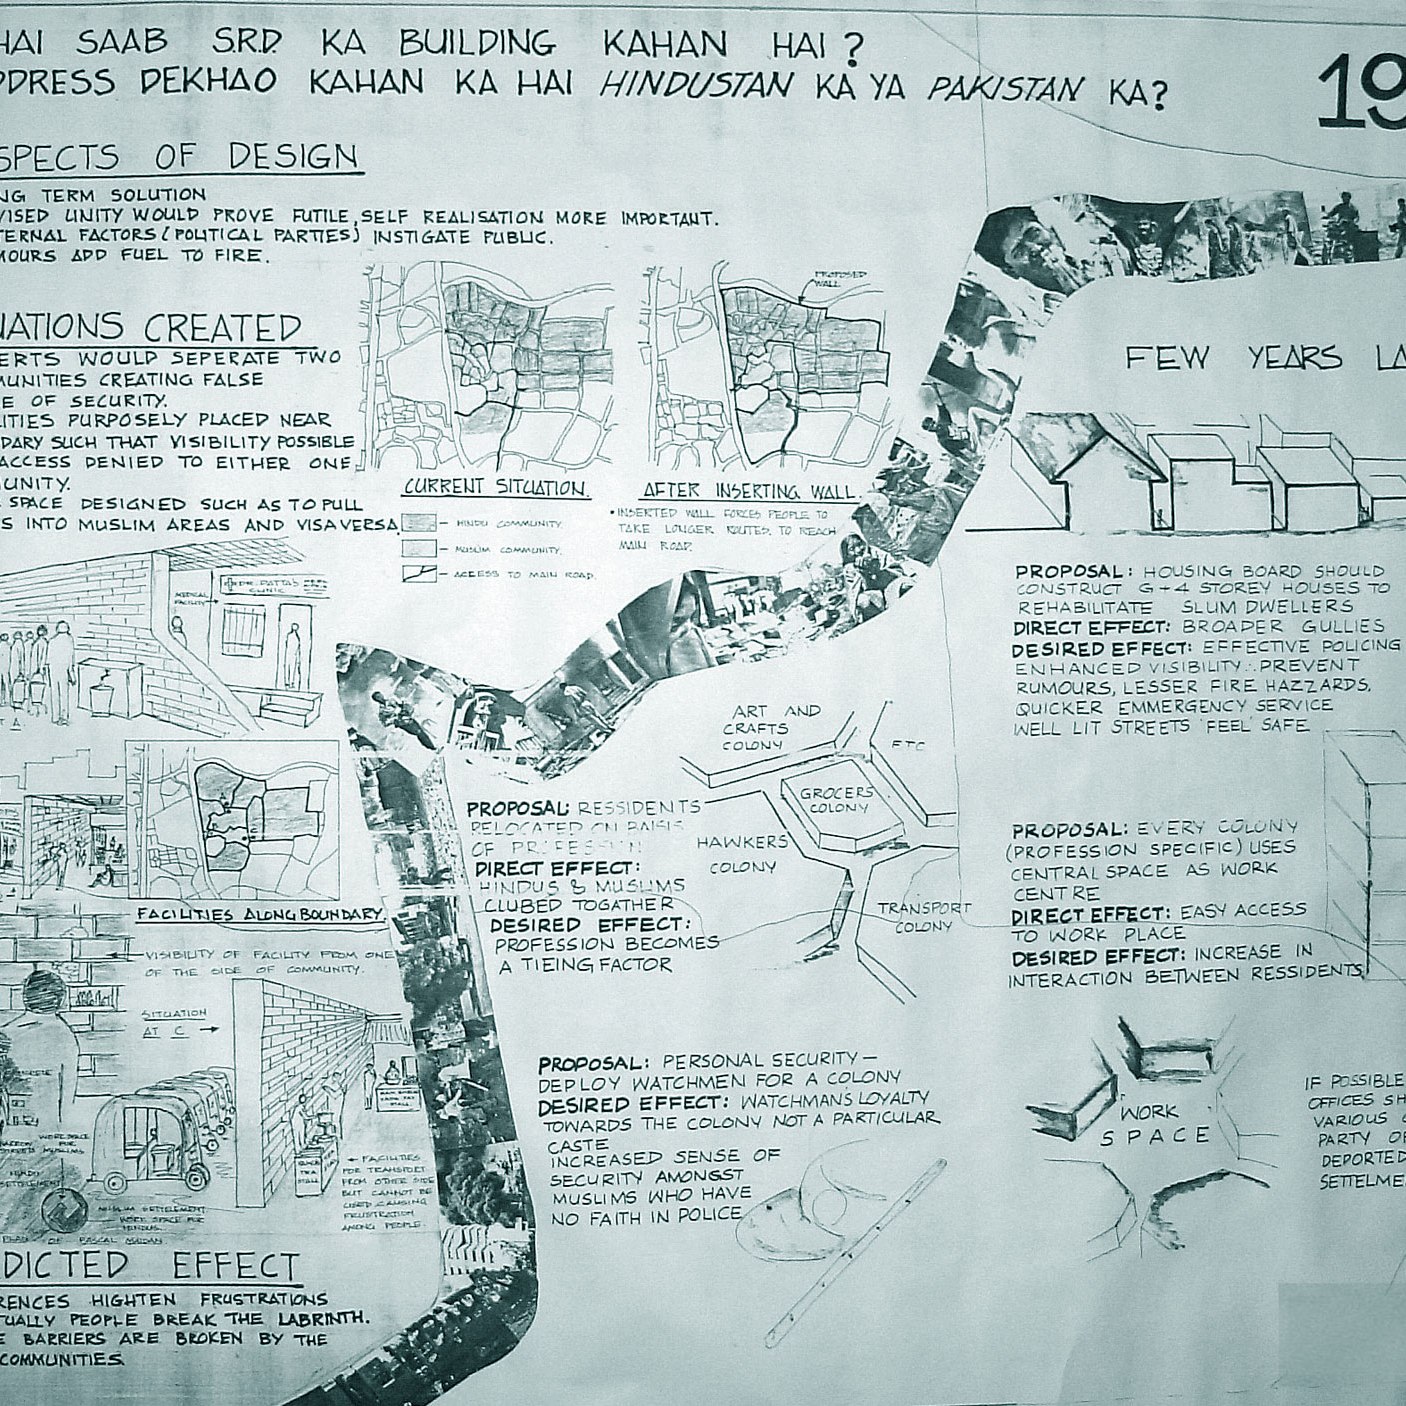 HAI SAAB S.R.D. KA BUILDING KAHAN HAI ?
DDRESS DEKHAO KAHAN KA HAI HINDUSTAN KA YA PAKISTAN KA?
19
SPECTS OF DESIGN
NG TERM SOLUTION
VISED UNITY WOULD PROVE FUTILE, SELF REALISATION MORE IMPORTANT.
TERNAL FACTORS (POLITICAL PARTIES) INSTIGATE PUBLIC.
MOURS ADD FUEL TO FIRE.
UATIONS CREATED
ERTS WOULD SEPERATE TWO
MUNITIES CREATING FALSE
E OF SECURITY.
ITIES PURPOSELY PLACED NEAR
DARY SUCH THAT VISIBILITY POSSIBLE
ACCESS DENIED TO EITHER ONE
UNITY.
SPACE DESIGNED SUCH AS TO PULL
S INTO MUSLIM AREAS AND VISAVERSA.
PROPOSED
WALL
CURRENT SITUATION.
- HINDU COMMUNITY.
- MUSLIM COMMUNITY.
- ACCESS TO MAIN ROAD.
AFTER INSERTING WALL.
• INSERTED WALL FORCES PEOPLE TO
TAKE LONGER ROUTES, TO REACH
MAIN ROAD.
MEDICAL
FACILITY
DR. DATTA'S
CLINIC
T A.
FACILITIES ALONG BOUNDARY.
VISIBILITY OF FACILITY FROM ONE
OF THE SIDE OF COMMUNITY.
SITUATION
AT C
WORK SPACE
FOR
MUSLIMS
HINDU
SETTLEMENT
MUSLIM SETTLEMENT
WORK SPACE FOR
HINDUS.
TEA
STALL
← FACILITIES
FOR TRANSPORT
FROM OTHER SIDE
BUT CANNOT BE
USED CAUSING
FRUSTRATION
AMONG PEOPLE.
DICTED EFFECT
RENCES HIGHTEN FRUSTRATIONS
TUALLY PEOPLE BREAK THE LABRINTH.
E BARRIERS ARE BROKEN BY THE
COMMUNITIES.
PROPOSAL: RESSIDENTS
RELOCATED ON BASIS
OF PROFESSION
DIRECT EFFECT:
HINDUS & MUSLIMS
CLUBED TOGATHER
DESIRED EFFECT:
PROFESSION BECOMES
A TIEING FACTOR
ART AND
CRAFTS
COLONY
ETC
GROCERS
COLONY
HAWKERS
COLONY
TRANSPORT
COLONY
PROPOSAL: PERSONAL SECURITY –
DEPLOY WATCHMEN FOR A COLONY
DESIRED EFFECT: WATCHMANS LOYALTY
TOWARDS THE COLONY NOT A PARTICULAR
CASTE
INCREASED SENSE OF
SECURITY AMONGST
MUSLIMS WHO HAVE
NO FAITH IN POLICE
FEW YEARS LA
PROPOSAL: HOUSING BOARD SHOULD
CONSTRUCT G+4 STOREY HOUSES TO
REHABILITATE SLUM DWELLERS
DIRECT EFFECT: BROADER GULLIES
DESIRED EFFECT: EFFECTIVE POLICING
ENHANCED VISIBILITY ∴ PREVENT
RUMOURS, LESSER FIRE HAZZARDS,
QUICKER EMMERGENCY SERVICE
WELL LIT STREETS 'FEEL' SAFE
PROPOSAL: EVERY COLONY
(PROFESSION SPECIFIC) USES
CENTRAL SPACE AS WORK
CENTRE
DIRECT EFFECT: EASY ACCESS
TO WORK PLACE
DESIRED EFFECT: INCREASE IN
INTERACTION BETWEEN RESSIDENTS
WORK
SPACE
IF POSSIBLE
OFFICES SH
VARIOUS
PARTY OF
DEPORTED
SETTELME